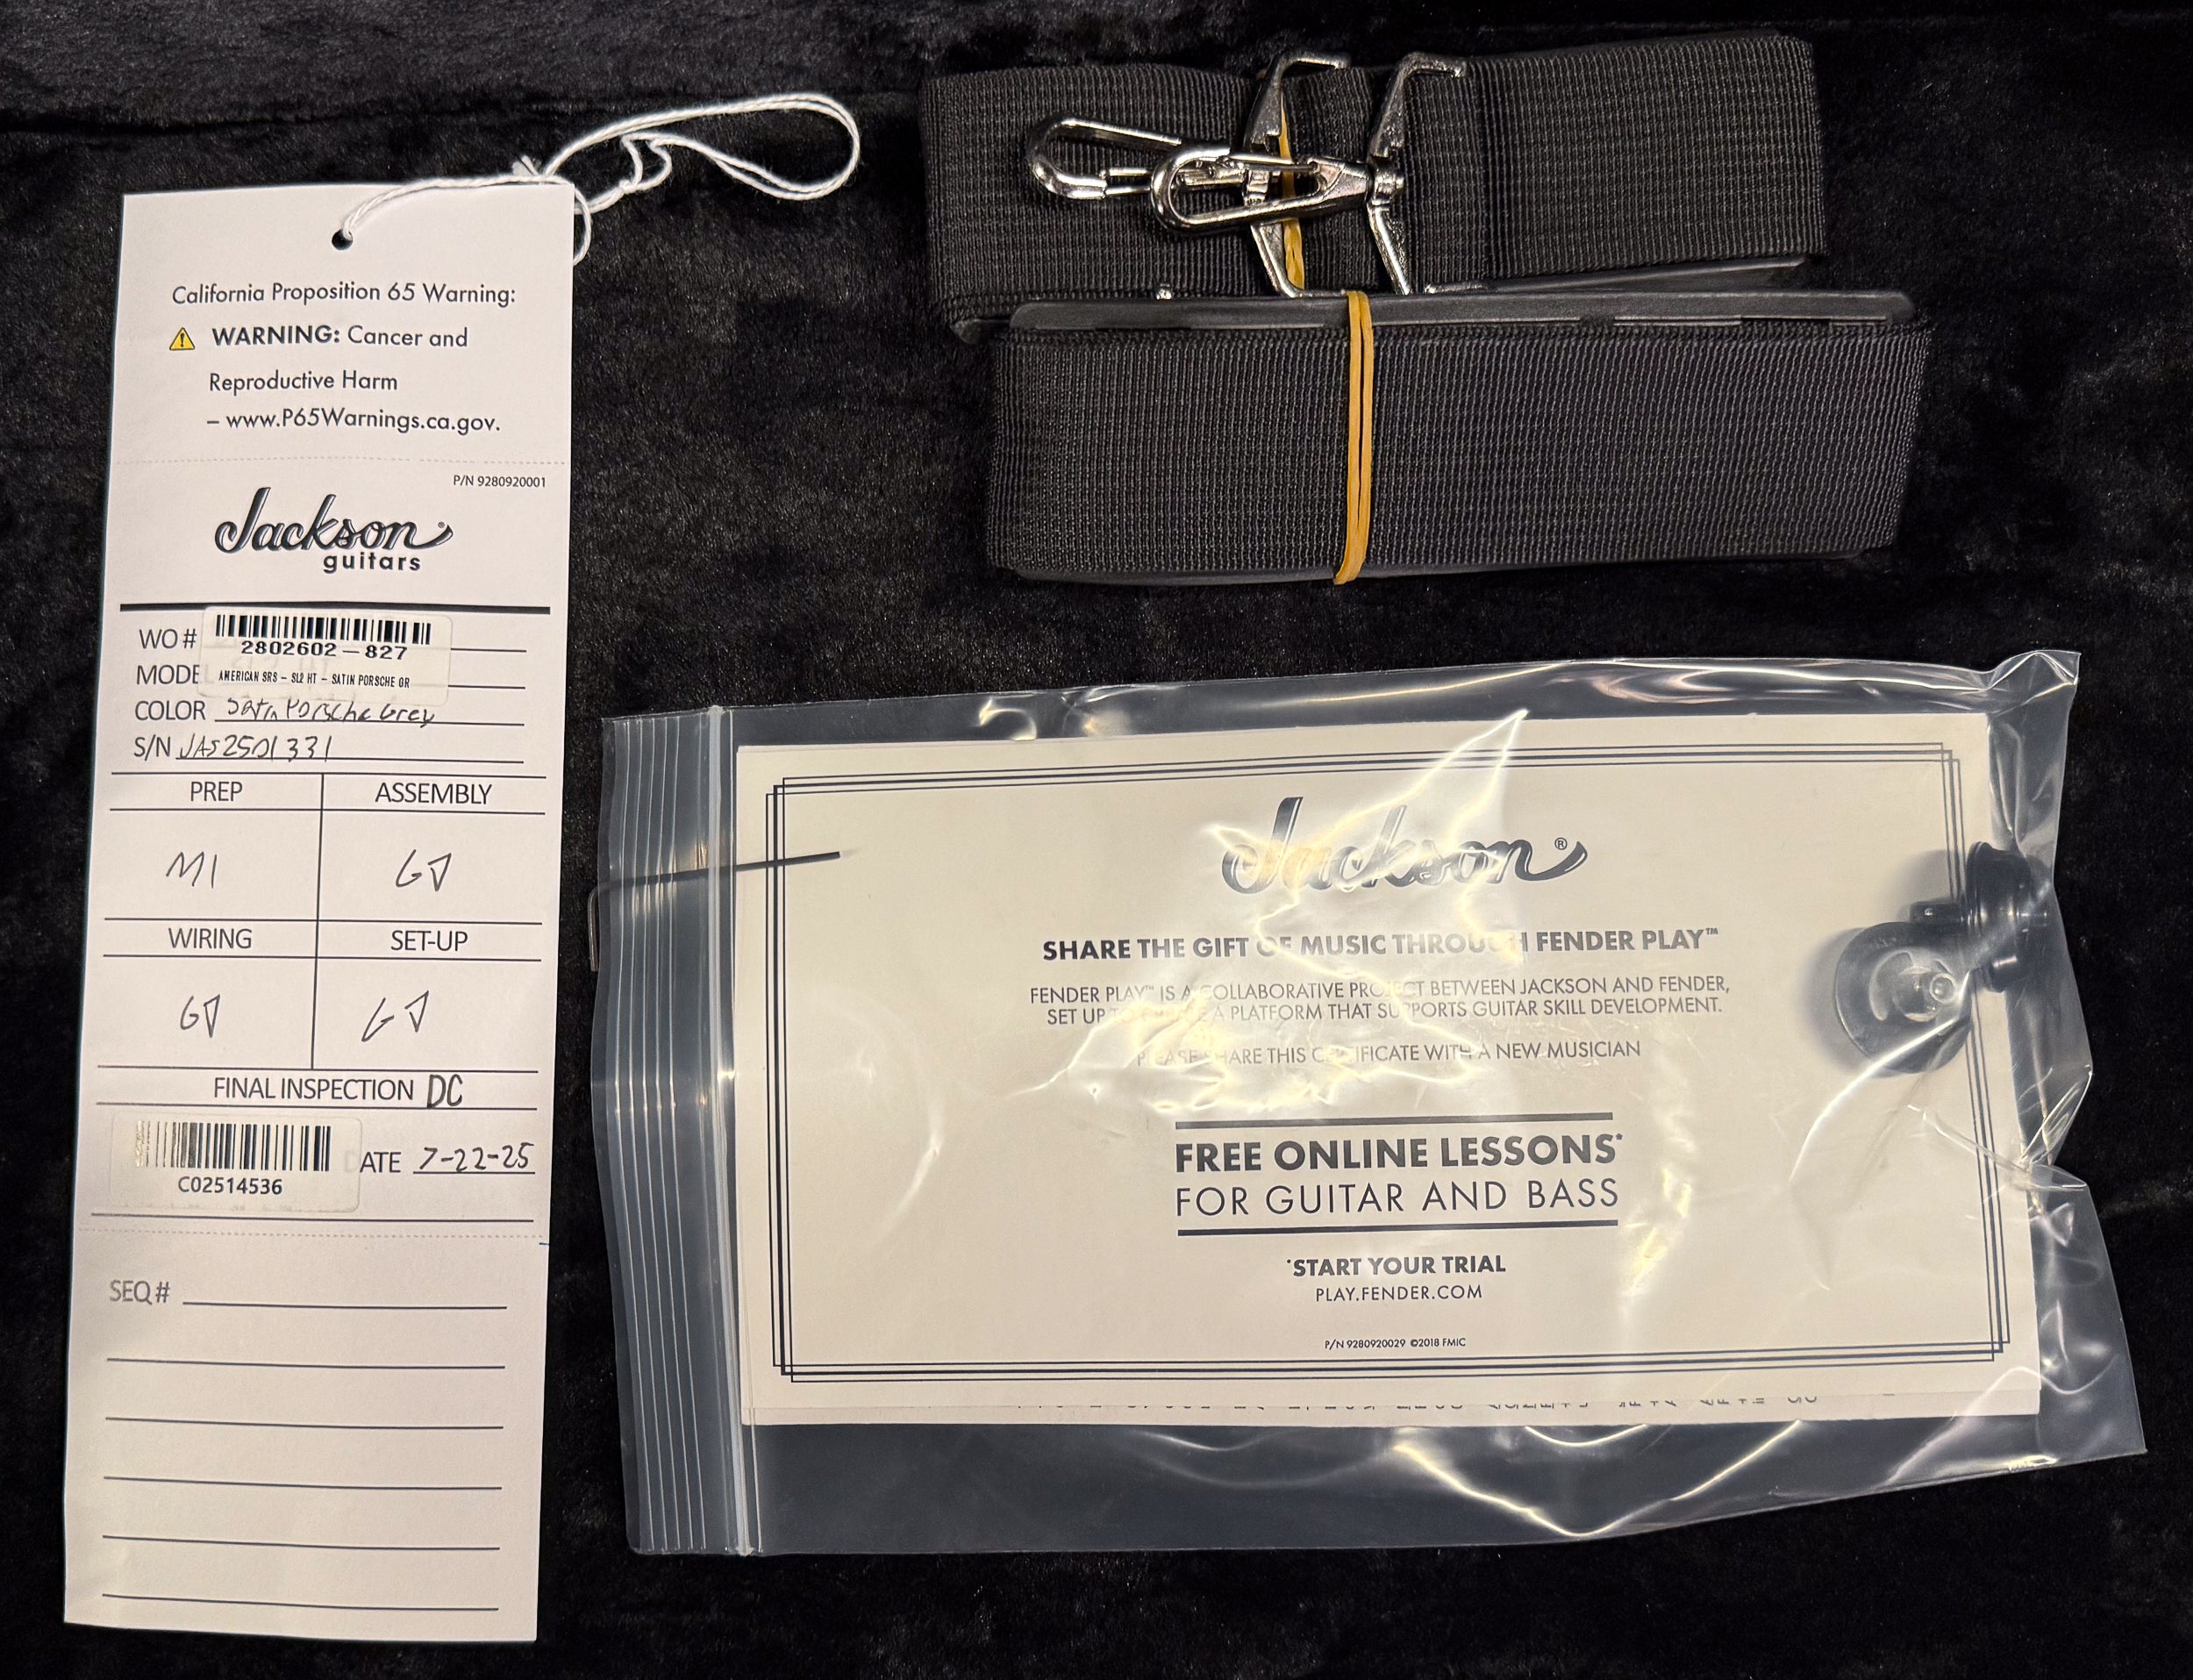 California Proposition 65 Warning:
WARNING: Cancer and
Reproductive Harm
– www.P65Warnings.ca.gov.
P/N 9280920001
Jackson®
guitars
WO#
2802602-827
MODEL
AMERICAN SRS - SL2 HT - SATIN PORSCHE GR
COLOR Satin Porsche Grey
S/N JAS2501331
PREP ASSEMBLY
MI GJ
WIRING SET-UP
GJ GJ
FINAL INSPECTION DC
DATE 7-22-25
C02514536
SEQ#
Jackson®
SHARE THE GIFT OF MUSIC THROUGH FENDER PLAY™
FENDER PLAY™ IS A COLLABORATIVE PROJECT BETWEEN JACKSON AND FENDER,
SET UP TO CREATE A PLATFORM THAT SUPPORTS GUITAR SKILL DEVELOPMENT.
PLEASE SHARE THIS CERTIFICATE WITH A NEW MUSICIAN
FREE ONLINE LESSONS*
FOR GUITAR AND BASS
*START YOUR TRIAL
PLAY.FENDER.COM
P/N 9280920029 ©2018 FMIC